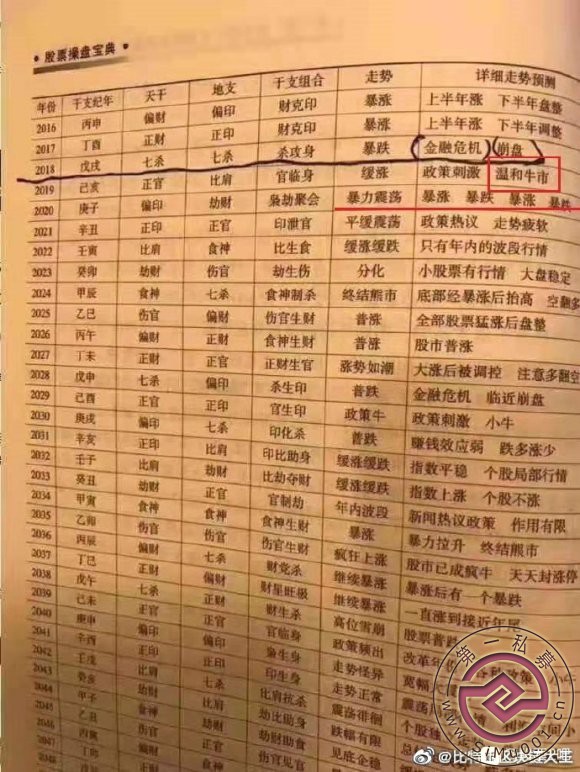 股票操盘宝典
年份 干支纪年 天干 地支 干支组合 走势 详细走势预测
2016 丙申 偏财 偏印 财克印 暴涨 上半年涨 下半年盘整
2017 丁酉 正财 正印 财克印 暴涨 上半年涨 下半年调整
2018 戊戌 七杀 七杀 杀攻身 暴跌 金融危机 崩盘
2019 己亥 正官 比肩 官临身 缓涨 政策刺激 温和牛市
2020 庚子 偏印 劫财 枭劫聚会 暴力震荡 暴涨 暴跌 暴涨 暴跌
2021 辛丑 正印 正官 印泄官 平缓震荡 政策热议 走势疲软
2022 壬寅 比肩 食神 比生食 缓涨缓跌 只有年内的波段行情
2023 癸卯 劫财 伤官 劫生伤 分化 小股票有行情 大盘稳定
2024 甲辰 食神 七杀 食神制杀 终结熊市 底部经暴涨后抬高 空翻多
2025 乙巳 伤官 偏财 伤官生财 普涨 全部股票猛涨后盘整
2026 丙午 偏财 正财 食神生财 普涨 股市普涨
2027 丁未 正财 正官 正财生官 涨势如潮 大涨后被调控 注意多翻空
2028 戊申 七杀 偏印 杀生印 普跌 金融危机 临近崩盘
2029 己酉 正官 正印 官生印 政策牛 政策刺激 小牛
2030 庚戌 偏印 七杀 印化杀 普跌 赚钱效应弱 跌多涨少
2031 辛亥 正印 比肩 印比助身 缓涨缓跌 指数平稳 个股局部行情
2032 壬子 比肩 劫财 比劫夺财 缓涨缓跌 指数上涨 个股不涨
2033 癸丑 劫财 正官 官制劫 年内波段 新闻热议政策 作用有限
2034 甲寅 食神 食神 食神生财 暴涨 暴力拉升 终结熊市
2035 乙卯 伤官 伤官 伤官生财 疯狂上涨 股市已成疯牛 天天封涨停
2036 丙辰 偏财 七杀 财党杀 继续暴涨 暴涨后有一个暴跌
2037 丁巳 正财 偏财 财星旺极 继续暴涨 一直涨到接近年尾
2038 戊午 七杀 正财 财生杀 高位雪崩 股票普跌
2039 己未 正官 正官 官临身 政策频出
2040 庚申 偏印 偏印 枭生身 走势怪异 宽幅
2041 辛酉 正印 正印 印生身 走势正常
壬戌 比肩 七杀 比肩抗杀 震荡徘徊
2043 癸亥 劫财 比肩 劫比助身 跌幅有限
2044 甲子 食神 劫财 见底企稳
乙丑 伤官 正官
丙寅 偏财 食神
第一私募
simu001.cn